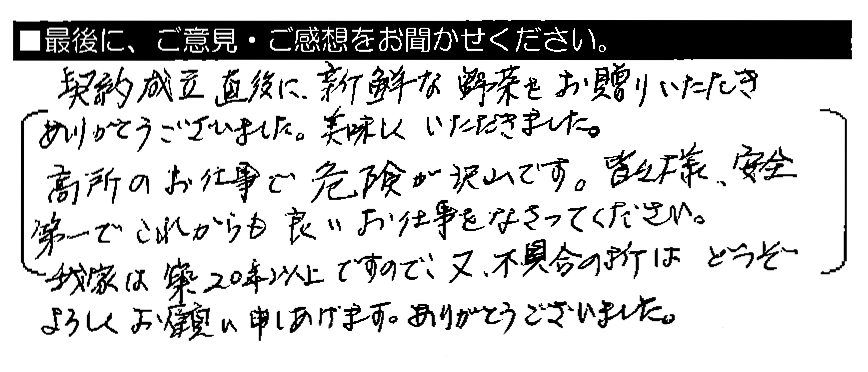 ■最後に、ご意見・ご感想をお聞かせください。
契約成立直後に、新鮮な野菜をお贈りいただき
ありがとうございました。美味しくいただきました。
高所のお仕事で危険が沢山です。皆々様、安全
第一でこれからも良いお仕事をなさってください。
我家は築20年以上ですので、又、不具合の折は どうぞ
よろしくお願い申しあげます。ありがとうございました。